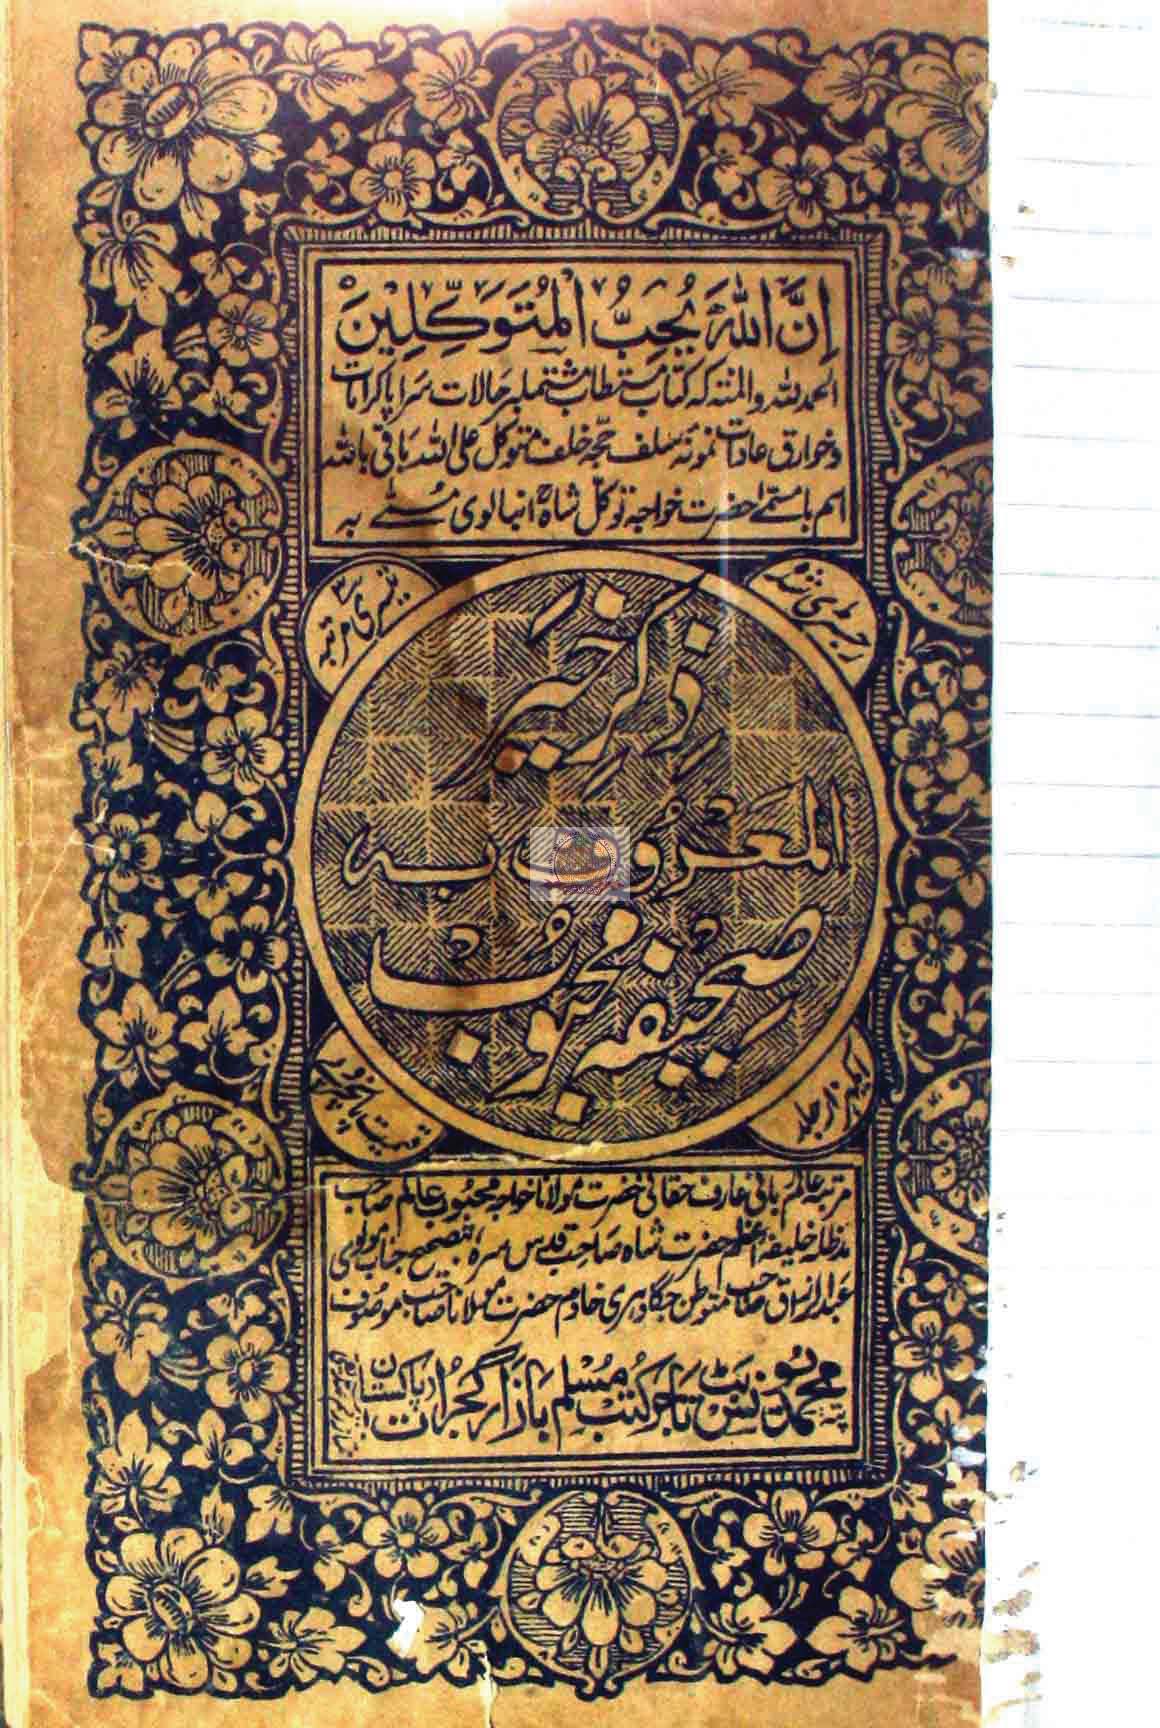 اِنَّ اللّٰهَ یُحِبُّ الْمُتَوَکِّلِیْنَ
الحمد للہ والمنتہ کہ کتاب مستطاب مشتملبر حالات سراپا کرامات
و خوارق عادات نمونۂ سلف حجۃ خلف متوکل علی اللہ باقی باللہ
اسم بامسمّٰے حضرت خواجہ توکل شاہؒ انبالوی مسمّٰے بہ
رجسٹری شدہ
تیسری مرتبہ
ذِکرِ خَیر
المَعروف بہ
صحیفۂ محبوب
مرتبہ عالم ربانی عارف حقانی حضرت مولانا خواجہ محبوب عالم صاحب
مدظلہ خلیفہ اعظم حضرت شاہ صاحب قدس سرہ، بتصحیح جناب مولوی
عبدالرزاق صاحب متوطن جگادہری خادم حضرت مولانا صاحب موصوف
پتہ محمد یونس بٹ تاجر کتب مُسلم بازار گجرات پاکستان